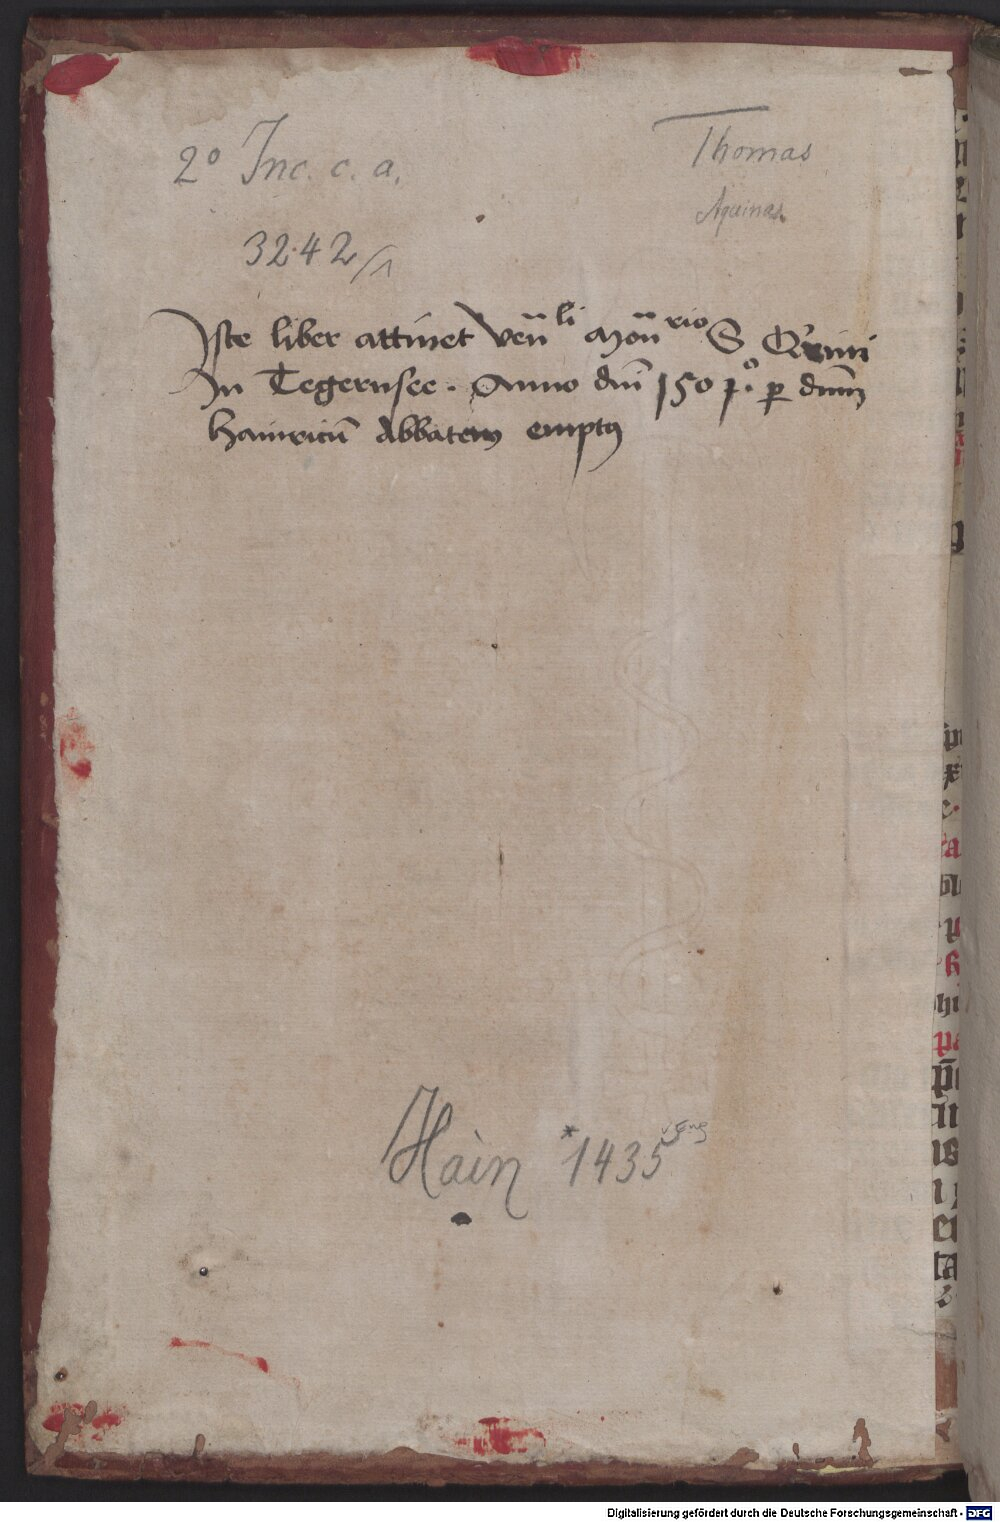 2° Inc. c. a.
Thomas
Aquinas.
3242/1
Iste liber attinet Ven̄li Mon̄rio S Q'rini
In Tegernsee . Anno dn̄i 1501.° ꝑ dn̄m
Hainricū Abbatem emptꝰ
Hain *1435
Digitalisierung gefördert durch die Deutsche Forschungsgemeinschaft - DFG